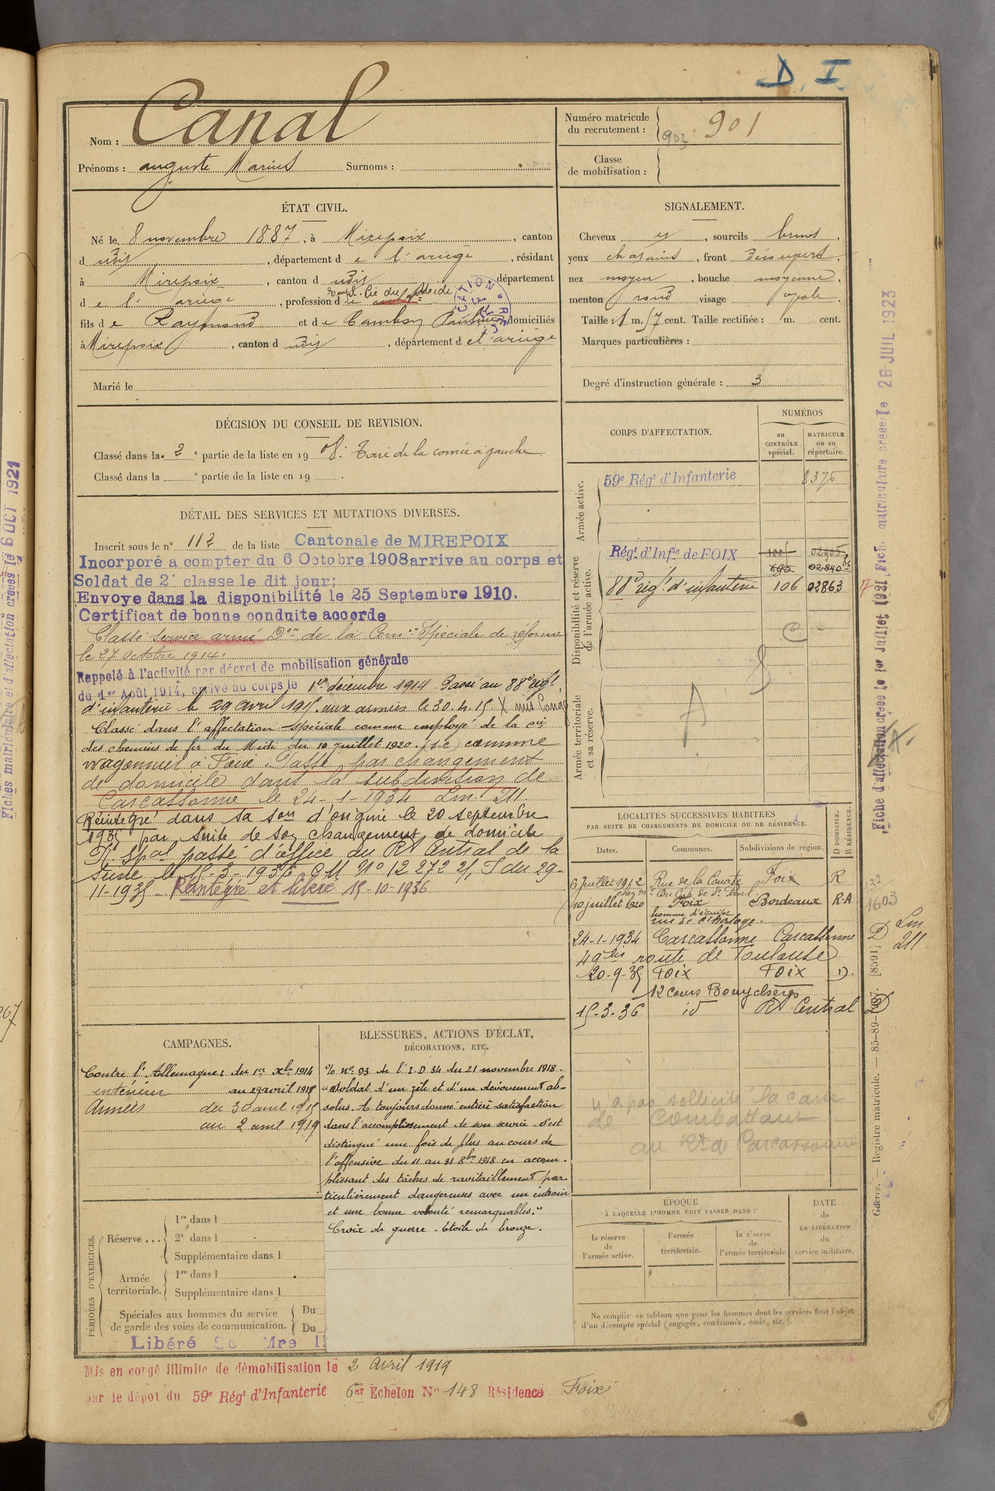 D. I.
Nom : Canal
Prénoms : auguste Marius Surnoms :
Numéro matricule du recrutement : 903 901
Classe de mobilisation :
ÉTAT CIVIL.
Né le 8 novembre 1887, à Mirepoix, canton
d udit, département de l'ariège, résidant
à Mirepoix, canton d udit département
de l'ariège, profession d
fils de Raymond et de domiciliés
à Mirepoix, canton d udit, département de l'ariège
Marié le
SIGNALEMENT.
Cheveux et, sourcils bruns,
yeux chatains, front découvert
nez moyen, bouche moyenne
menton rond visage ovale
Taille : 1 m. 57 cent. Taille rectifiée : m. cent.
Marques particulières :
Degré d'instruction générale : 3
DÉCISION DU CONSEIL DE REVISION.
Classé dans la 2e partie de la liste en 1908. Taie de la cornée à gauche
Classé dans la e partie de la liste en 19 .
DÉTAIL DES SERVICES ET MUTATIONS DIVERSES.
Inscrit sous le n° 112 de la liste Cantonale de MIREPOIX
Incorporé a compter du 6 Octobre 1908 arrive au corps et
Soldat de 2e classe le dit jour;
Envoye dans la disponibilité le 25 Septembre 1910.
Certificat de bonne conduite accorde
Classé Service armé Don de la Comon Spéciale de réforme
le 27 octobre 1914.
Rappelé à l'activité par décret de mobilisation générale
du 1er Août 1914, arrivé au corps le 1er décembre 1914. Passé au 88e régt
d'infanterie le 29 avril 1915. aux armées le 30.4.15
Classé dans l'affectation spéciale comme employé de la cie
des chemins de fer du Midi du 10 juillet 1920. (s.e) comme
wagonnier à Foix. Passé par changement
de domicile dans la subdivision de
Carcassonne le 24-1-1934 Lm. 211
Réintégré dans sa son d'origine le 20 septembre
1935 par suite de son changement de domicile
passé d'office au Rt Central de la
Seine le 15-3-1936 N° 12.272 du 29-
11-1935 Réintégré et libéré 15-10-1936
CORPS D'AFFECTATION.
NUMÉROS
au CONTRÔLE spécial.
MATRICULE ou au répertoire.
Armée active.
59e Régt d'Infanterie 8375
Disponibilité et réserve de l'armée active.
Régt d'Infie de FOIX
88e rég.t d'infanterie 106 02863
Armée territoriale et sa réserve.
A
LOCALITÉS SUCCESSIVES HABITÉES
PAR SUITE DE CHANGEMENTS DE DOMICILE OU DE RÉSIDENCE.
Dates. Communes. Subdivisions de région. D DOMICILE. R RÉSIDENCE.
6 Juillet 1912 Rue de la Foix R
10 juillet 1920 Foix Bordeaux R.A
homme d'équipe
24-1-1934 Carcassonne Carcassonne D
49 bis route de Toulouse
20.9.35 Foix Foix D.
12 Cours Bouychères
15-3-36 id Rt Central D
Lm 211
1603
n'a pas sollicité la carte
de Combattant
au Rt de Carcassonne
CAMPAGNES.
Contre l'Allemagne : du 1er Xbre 1914
intérieur au 29 avril 1915
Armées du 30 avril 1915
au 2 avril 1919
BLESSURES, ACTIONS D'ÉCLAT, DÉCORATIONS, ETC.
% n° 93 de l'I.D 34 du 21 novembre 1918.
"Soldat d'un zèle et d'un dévouement ab-
solus. A toujours donné entière satisfaction
dans l'accomplissement de son service. S'est
distingué une fois de plus au cours de
l'offensive du 11 au 31 8bre 1918 en accom-
plissant des tâches de ravitaillement par-
ticulièrement dangereuses avec un entrain
et une bonne volonté remarquables."
Croix de guerre. Etoile de bronze.
PÉRIODES D'EXERCICES.
Réserve ... 1re dans l
2e dans l
Supplémentaire dans l
Armée territoriale. 1re dans l
Supplémentaire dans l
Spéciales aux hommes du service de garde des voies de communication. Du
Du
Libéré
ÉPOQUE
À LAQUELLE L'HOMME DOIT PASSER DANS :
la réserve de l'armée active.
l'armée territoriale.
la réserve de l'armée territoriale
DATE de LA LIBÉRATION du service militaire.
Ne remplir ce tableau que pour les hommes dont les services font l'objet
d'un décompte spécial (engagés, condamnés, omis, etc.).
Mis en congé illimité de démobilisation le 2 Avril 1919
par le dépôt du 59e Régt d'Infanterie 6er Echelon N° 148 Résidence Foix
Fiche d'affectation créée le 1er Juillet 1921, Fich. matriculaire créée le 26 JUIL 1923
Giderce. — Registre matricule. — 85-89-1907. [8591]
Fiches matriculaire et d'affectation créées le 6 OCT 1921